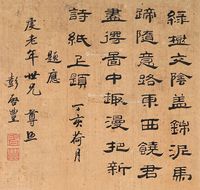 綠樹交陰盖錦泥馬
蹄隨意路東西饒君
盡得圖中趣漫把新
詩紙上題 丁亥荷月
題應
度老年世兄 尊
彭啟豐